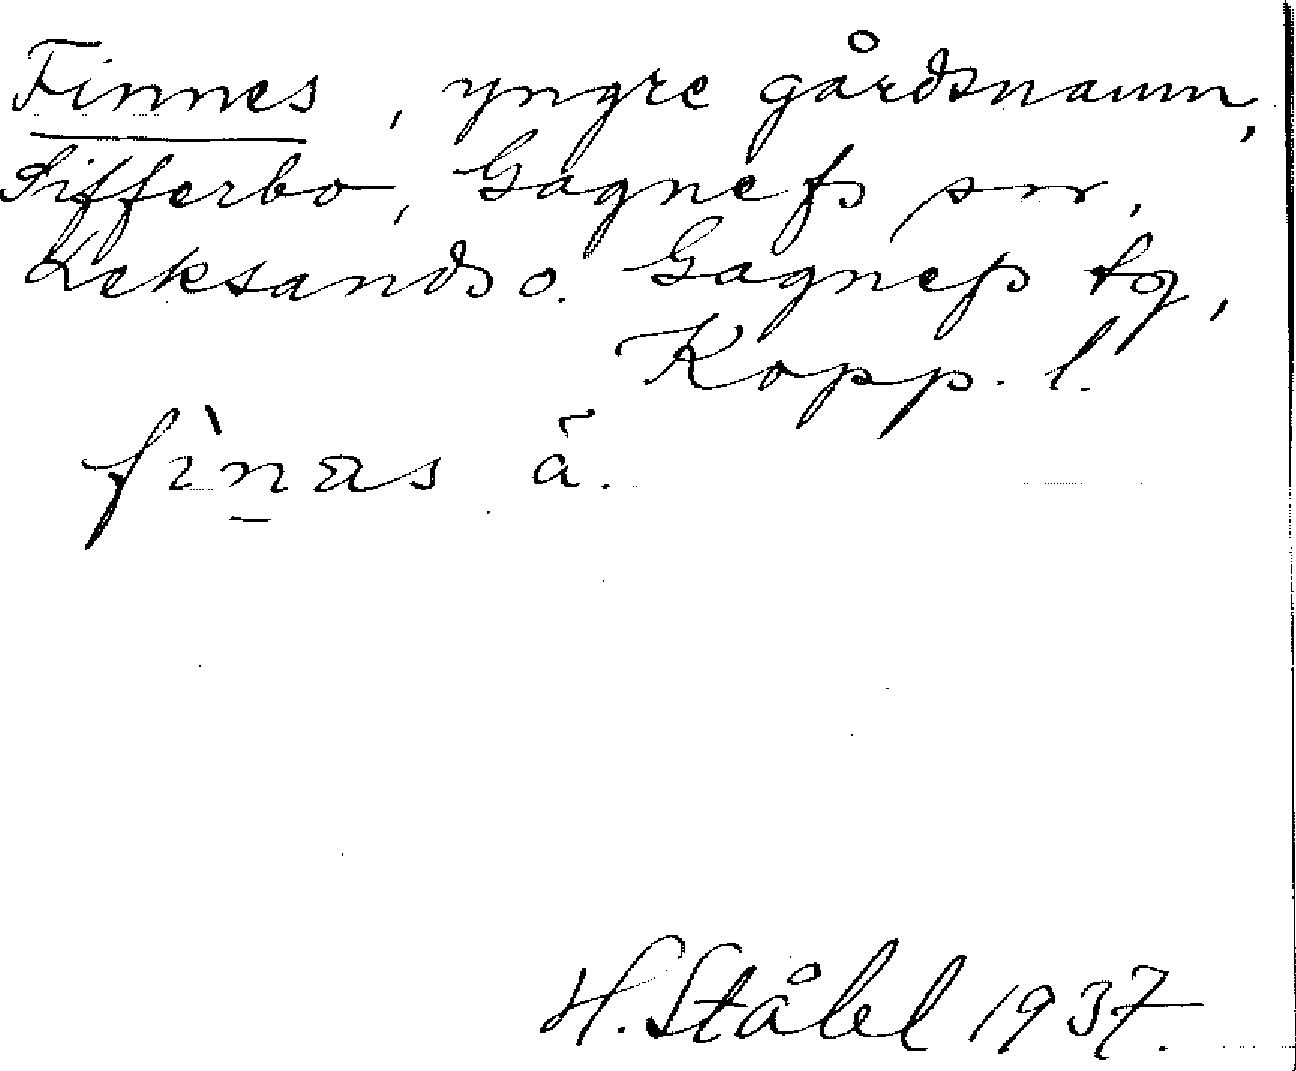 Finnes, yngre gårdsnamn,
Sifferbo, Gagnefs sn,
Leksands o. Gagnefs tg,
Kopp. l.
fìn̠as ā.
H. Ståhl 1937.